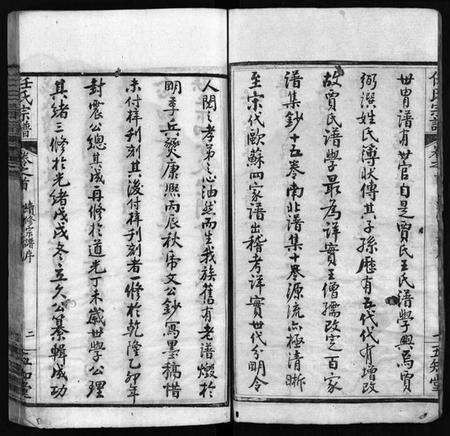 世胄譜有世官自是賈氏王氏譜學興焉賈
弼譔姓氏簿狀傳其子孫歷有五代代有增改
故賈氏譜學最為詳實王僧孺改定百家
譜集鈔十五卷南北譜集十卷源流亦極清晰
至宗代歐蘇四家譜出稽考詳實世代分明令
五知堂
任氏宗譜
卷之首
續修宗譜序
二
人閱之孝弟之心油然而生我族舊有老譜燬於
明季兵燹康熙丙辰秋帝文公鈔寫墨稿惜
未付梓刊刻其後付梓刊刻者一修於乾隆乙卯年
封震公總其成再修於道光丁未歲世學公理
其緒三修於光緒戊戌冬立久公纂輯成功